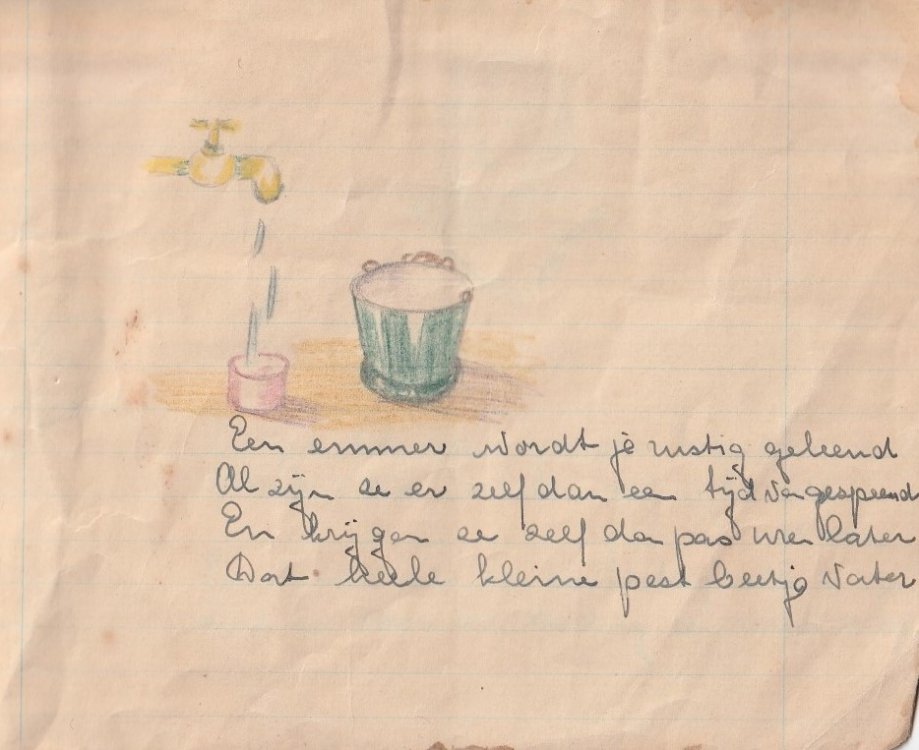 Een emmer wordt je rustig geleend
Al zijn ze er zelf dan een tijd van gespeend
En krijgen ze zelf dan pas uren later
Dat heele kleine pest beetje water